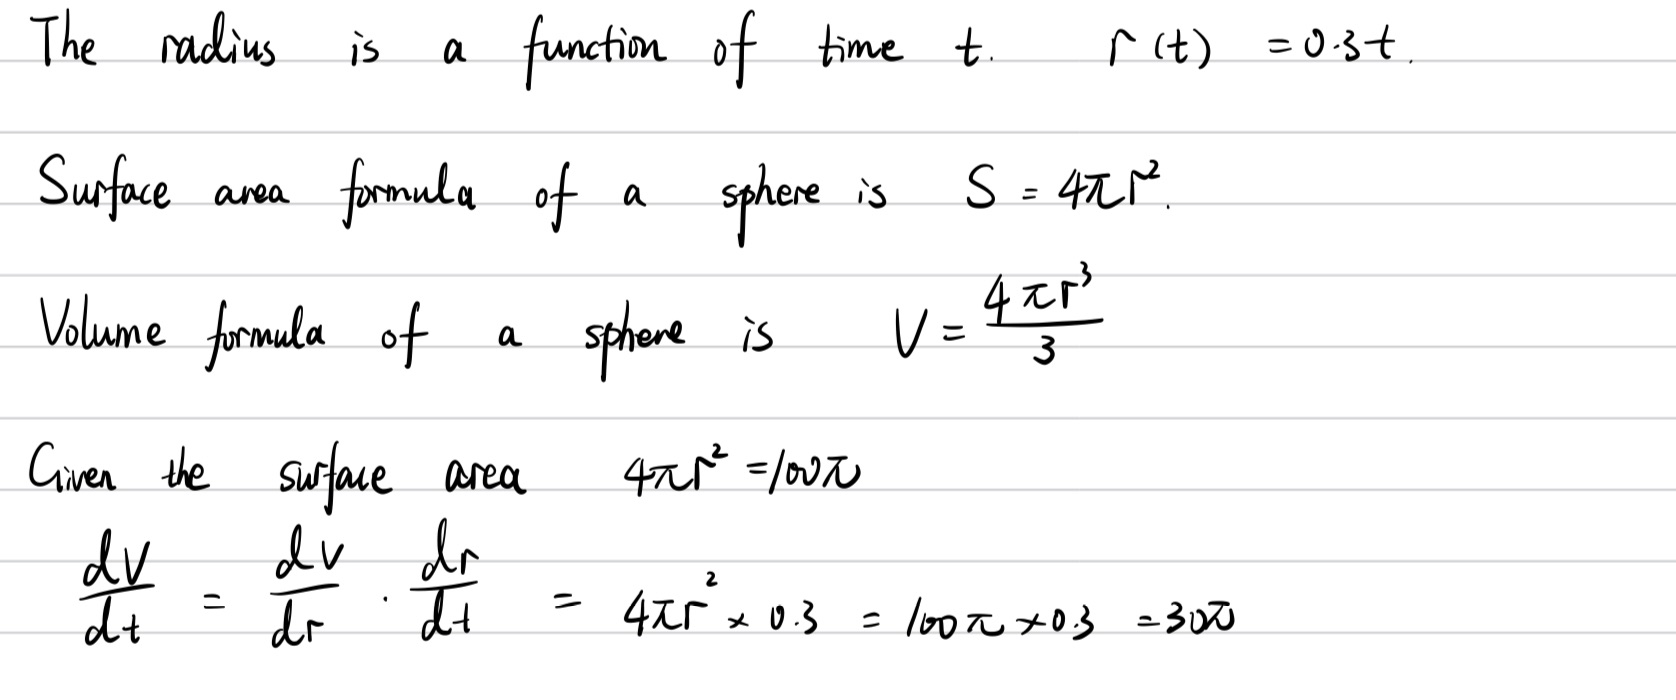 The radius is a function of time t. r(t) = 0.3t.
Surface area formula of a sphere is S = 4πr².
Volume formula of a sphere is V = 4πr³/3
Given the surface area 4πr² = 100π
dV/dt = dv/dr · dr/dt = 4πr² × 0.3 = 100π × 0.3 = 30π